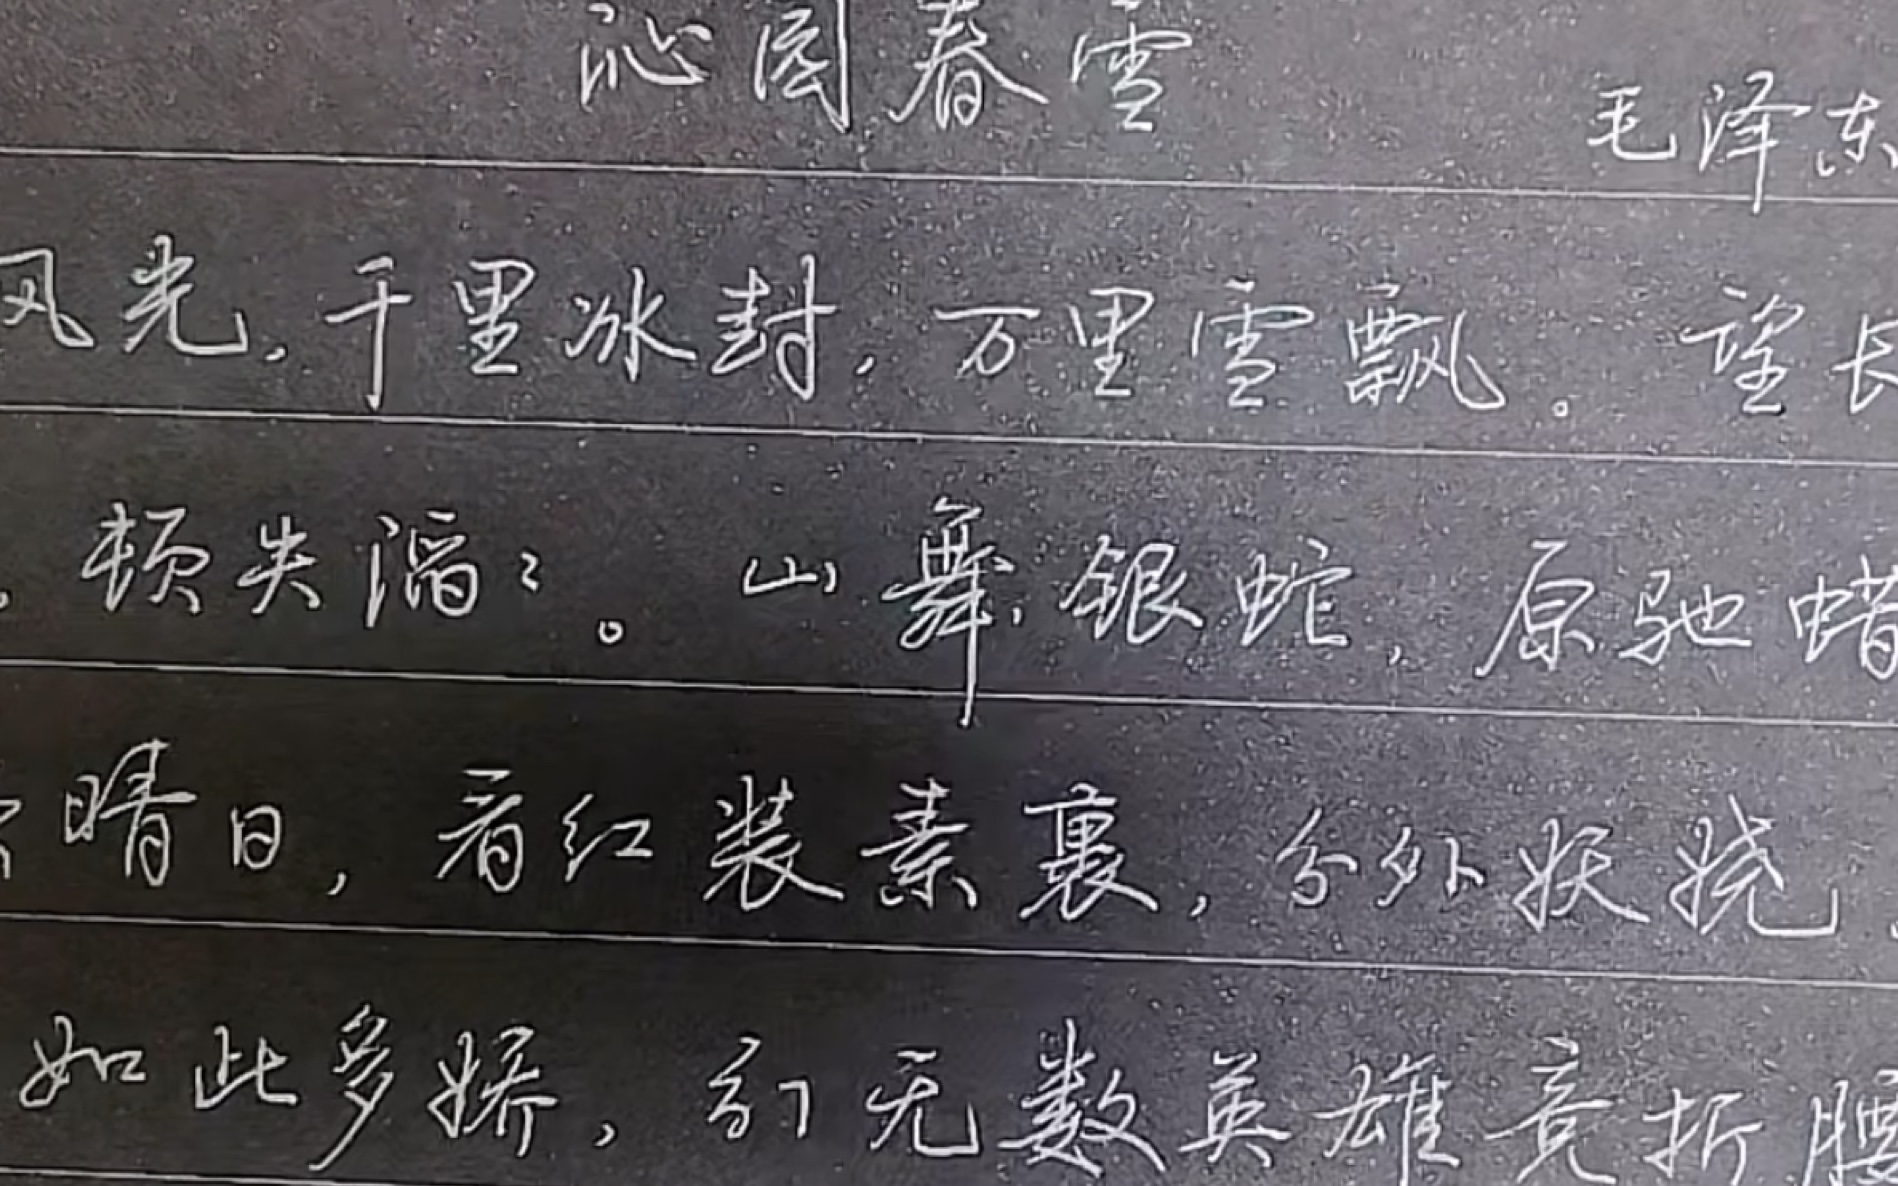 沁园春雪
毛泽东
风光，千里冰封，万里雪飘。望长
。顿失滔:。山舞银蛇，原驰蜡
晴日，看红装素裹，分外妖娆
如此多娇，引无数英雄竞折腰